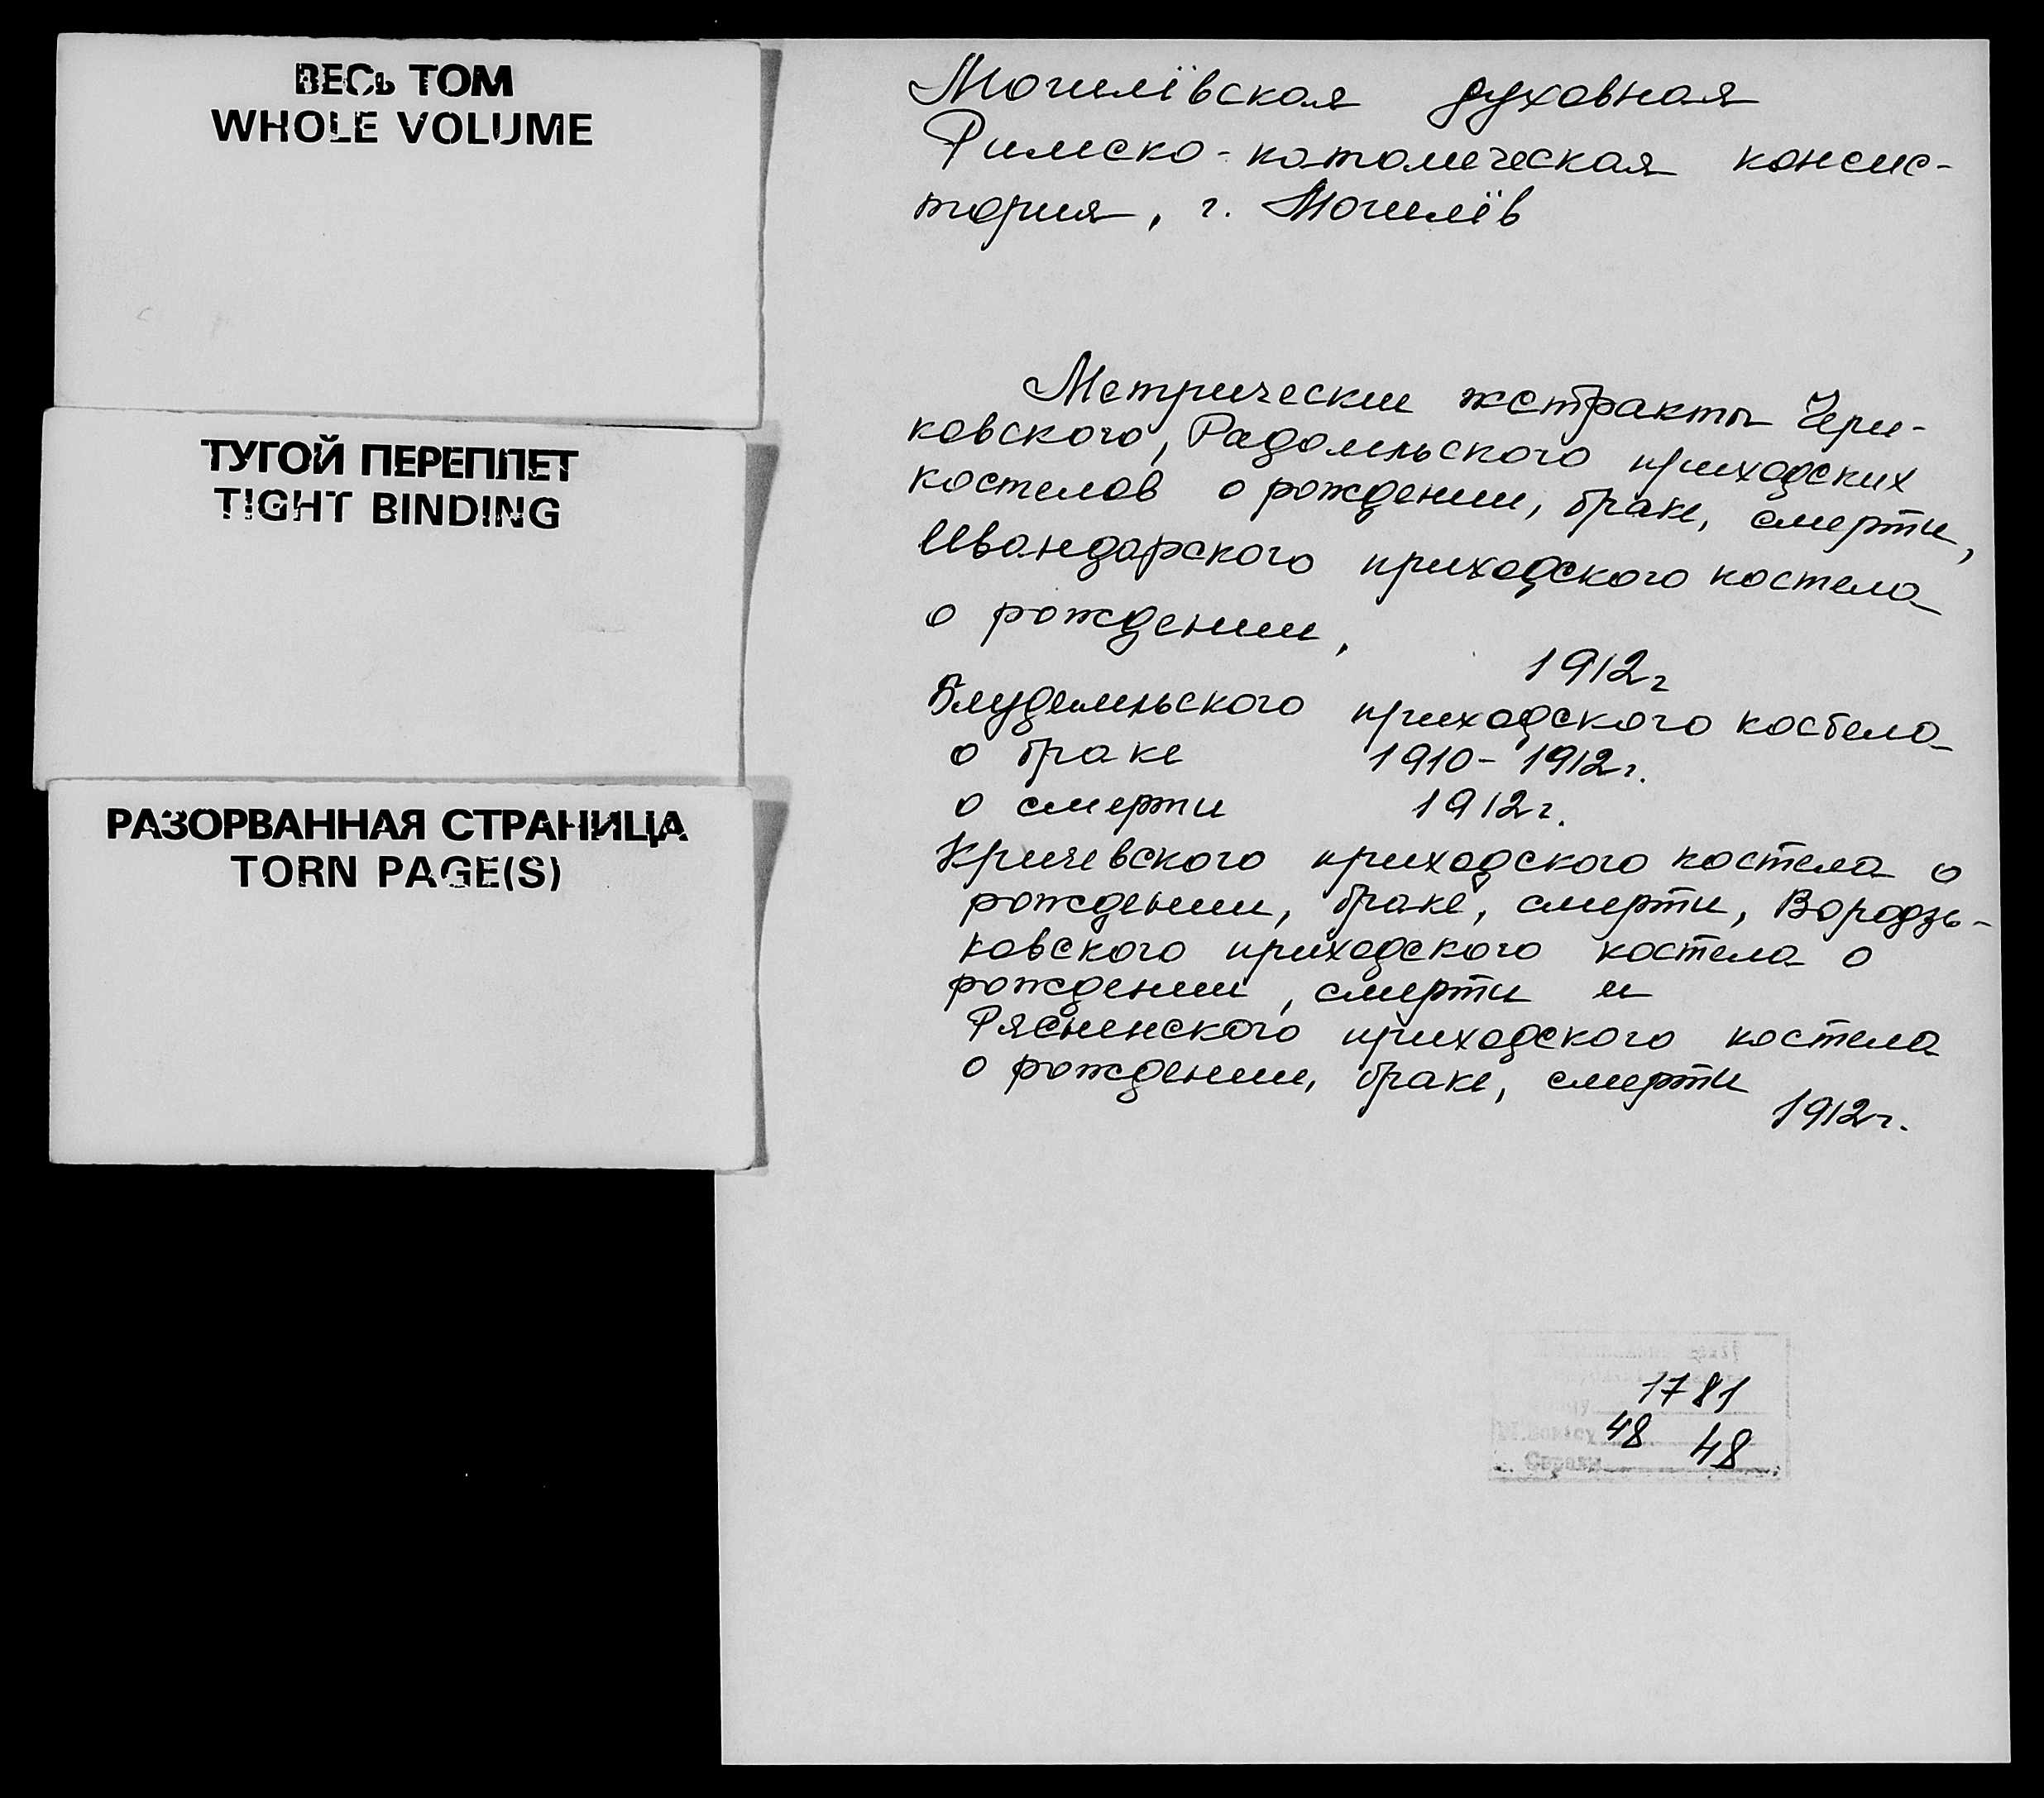 ВЕСЬ ТОМ
WHOLE VOLUME
ТУГОЙ ПЕРЕПЛЕТ
TIGHT BINDING
РАЗОРВАННАЯ СТРАНИЦА
TORN PAGE(S)
Могилёвская духовная
Римско-католическая консис-
тория, г. Могилёв
Метрические экстракты Чери-
ковского, Радомльского приходских
костелов о рождении, браке, смерти,
Ивандарского приходского костела
о рождении,
1912г
Блудемльского приходского костела
о браке 1910-1912г.
о смерти 1912г.
Кричевского приходского костела о
рождении, браке, смерти, Вородзь-
ковского приходского костела о
рождении, смерти и
Рясненского приходского костела
о рождении, браке, смерти
1912г.
1781
48 48